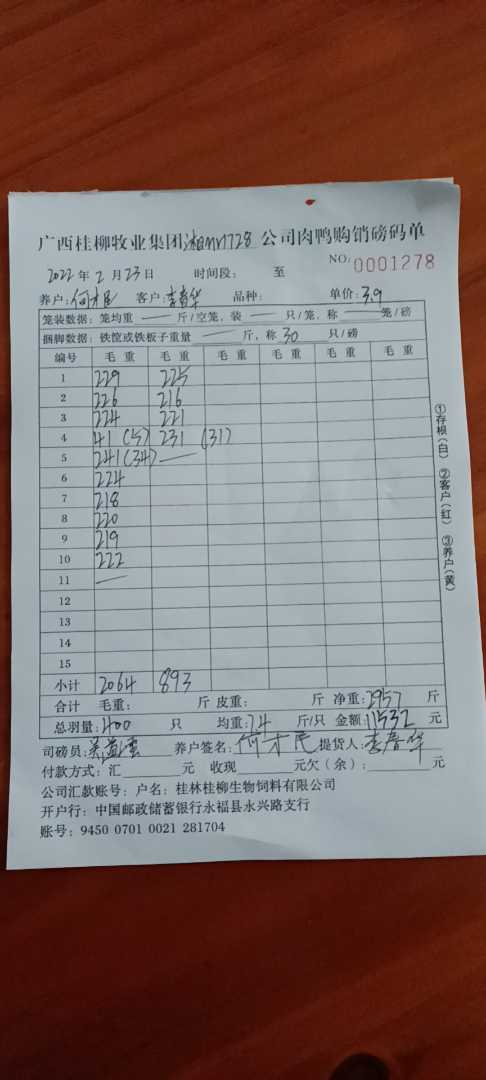 广西桂柳牧业集团湘BMN728公司肉鸭购销磅码单
NO: 0001278
2022年2月23日 时间段: 至
养户:何才民 客户:李春华 品种: 单价:3.9
笼装数据: 笼均重 — 斤/空笼, 装 — 只/笼, 称 — 笼/磅
捆脚数据: 铁筐或铁板子重量 — 斤, 称 30 只/磅
编号 毛重 毛重 毛重 毛重 毛重 毛重
1 229 225
2 226 216
3 224 221
4 41(5) 231(31)
5 241(34) —
6 224
7 218
8 220
9 219
10 222
11 —
12
13
14
15
小计 2064 893
合计 毛重: 斤 皮重: 斤 净重:2957 斤
总羽量:400 只 均重:7.4 斤/只 金额:11532 元
司磅员: 养户签名:何才民 提货人:李春华
付款方式: 汇 元 收现 元欠(余): 元
公司汇款账号: 户名: 桂林桂柳生物饲料有限公司
开户行: 中国邮政储蓄银行永福县永兴路支行
账号: 9450 0701 0021 281704
①存根(白) ②客户(红) ③养户(黄)